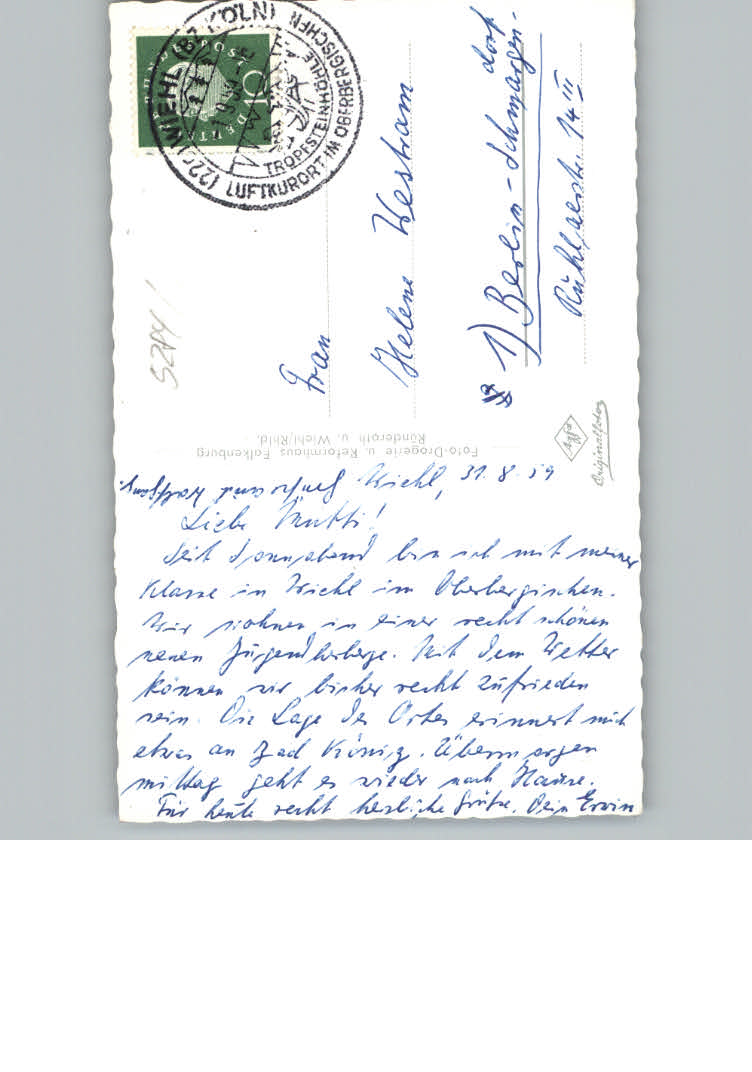 (22c) WIEHL (BZ KÖLN)
LUFTKURORT IM OBERBERGISCHEN
TROPFSTEINHÖHLE
DEUTSCHE BUNDESPOST
10
Frau
Helene Westram
1) Berlin-Schmargen-
dorf
Rühlaerstr. 14 III
5284
Foto-Drogerie u. Reformhaus Falkenburg
Ründeroth u. Wiehl/Rhld.
Agfa
Originalfoto
Wiehl, 31.8.59
Liebe Mutti!
Seit Sonnabend bin ich mit meiner
Klasse in Wiehl im Oberbergischen.
Wir wohnen in einer recht schönen
neuen Jugendherberge. Mit dem Wetter
können wir bisher recht zufrieden
sein. Die Lage des Ortes erinnert mich
etwas an Bad König. Übermorgen
mittag geht es wieder nach Hause.
Für heute recht herzliche Grüße. Dein Erwin